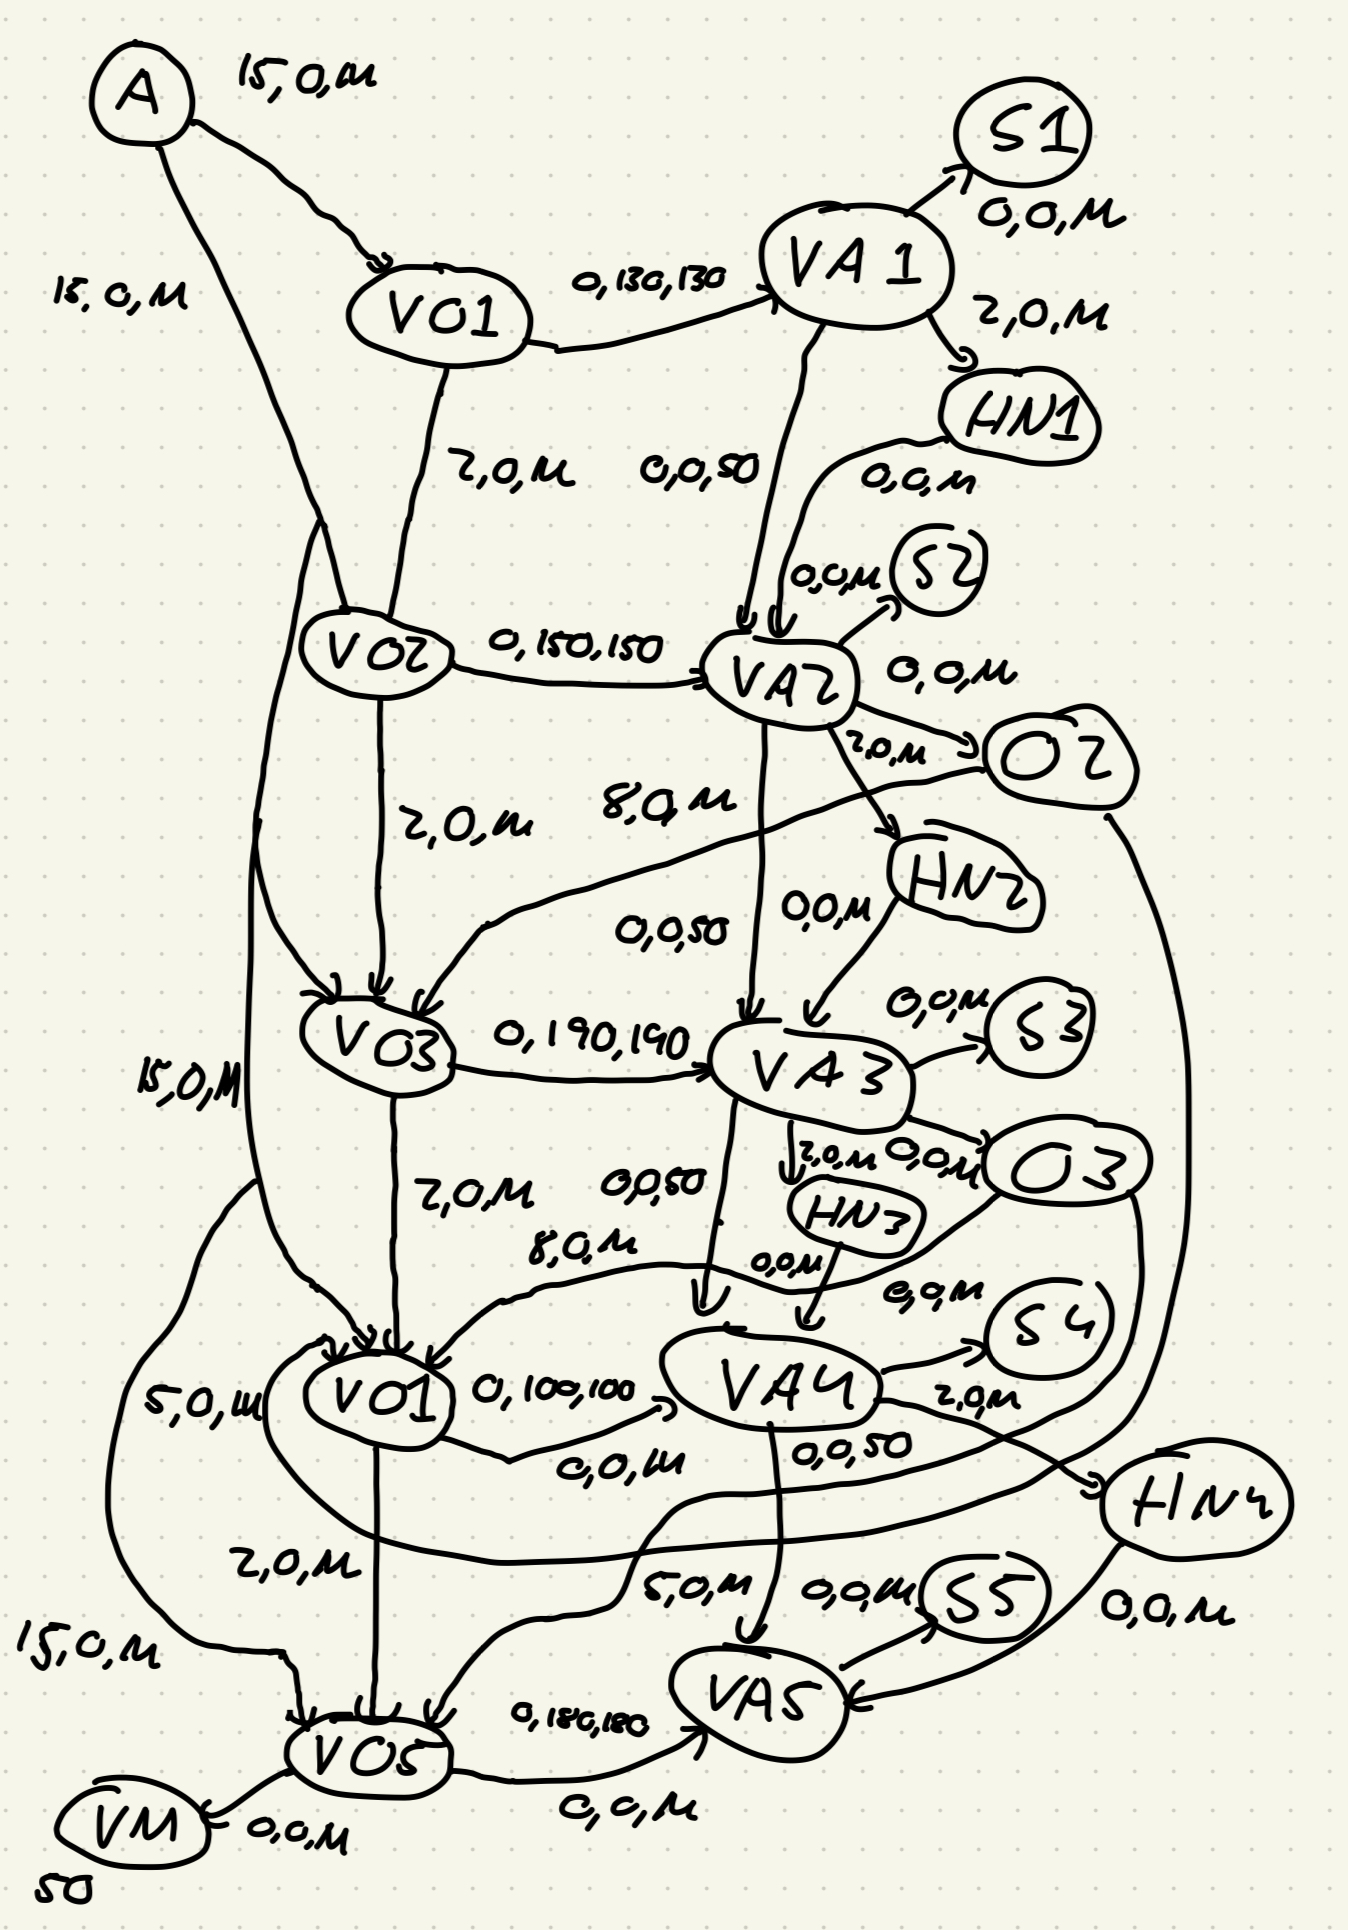 A
15,0,M
S1
0,0,M
VA1
15,0,M
VO1
0,130,130
2,0,M
HN1
2,0,M
0,0,50
0,0,M
0,0,M
S2
VO2
0,150,150
VA2
0,0,M
2,0,M
O2
8,0,M
2,0,M
HN2
0,0,M
0,0,50
0,0,M
S3
VO3
0,190,190
VA3
15,0,M
2,0,M
0,0,M
O3
2,0,M
0,0,50
HN3
8,0,M
0,0,M
0,0,M
S4
5,0,M
VO1
0,100,100
VA4
2,0,M
0,0,M
0,0,50
HN4
2,0,M
5,0,M
0,0,M
S5
0,0,M
15,0,M
VA5
0,180,180
VO5
VM
0,0,M
0,0,M
50